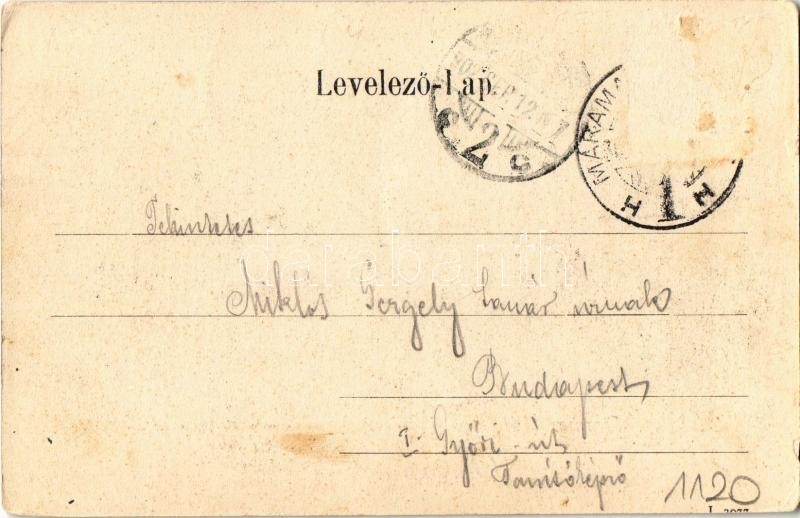 Levelező-Lap.
MÁRAMA
H 1 N
Tekintetes
Miklos Gergely tanár úrnak
Budapest
I. Győri-út
Tanítóképző
1120
darabanth